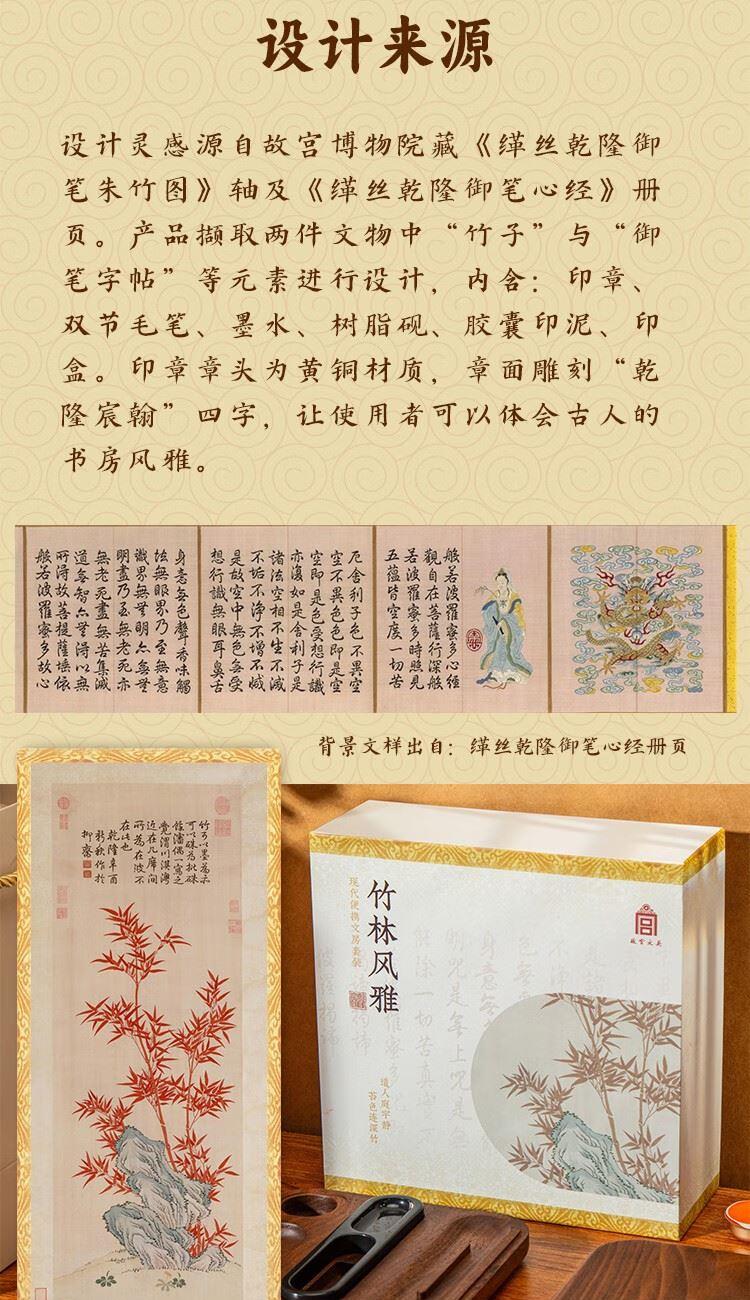 设计来源
设计灵感源自故宫博物院藏《缂丝乾隆御
笔朱竹图》轴及《缂丝乾隆御笔心经》册
页。产品撷取两件文物中“竹子”与“御
笔字帖”等元素进行设计，内含：印章、
双节毛笔、墨水、树脂砚、胶囊印泥、印
盒。印章章头为黄铜材质，章面雕刻“乾
隆宸翰”四字，让使用者可以体会古人的
书房风雅。
般若波羅蜜多心經
觀自在菩薩行深般
若波羅蜜多時照見
五蘊皆空度一切苦
厄舍利子色不異空
空不異色色即是空
空即是色受想行識
亦復如是舍利子是
諸法空相不生不滅
不垢不淨不增不減
是故空中無色無受
想行識無眼耳鼻舌
身意無色聲香味觸
法無眼界乃至無意
識界無無明亦無無
明盡乃至無老死亦
無老死盡無苦集滅
道無智亦無得以無
所得故菩提薩埵依
般若波羅蜜多故心
背景文样出自：缂丝乾隆御笔心经册页
竹可以墨為亦
可以硃為此硃
近在几席間
所為在彼不
在此也
乾隆辛酉
新秋作於
抑齋
竹林风雅
现代便携文房套装
故宫文具
道人庭宇静
苔色连深竹